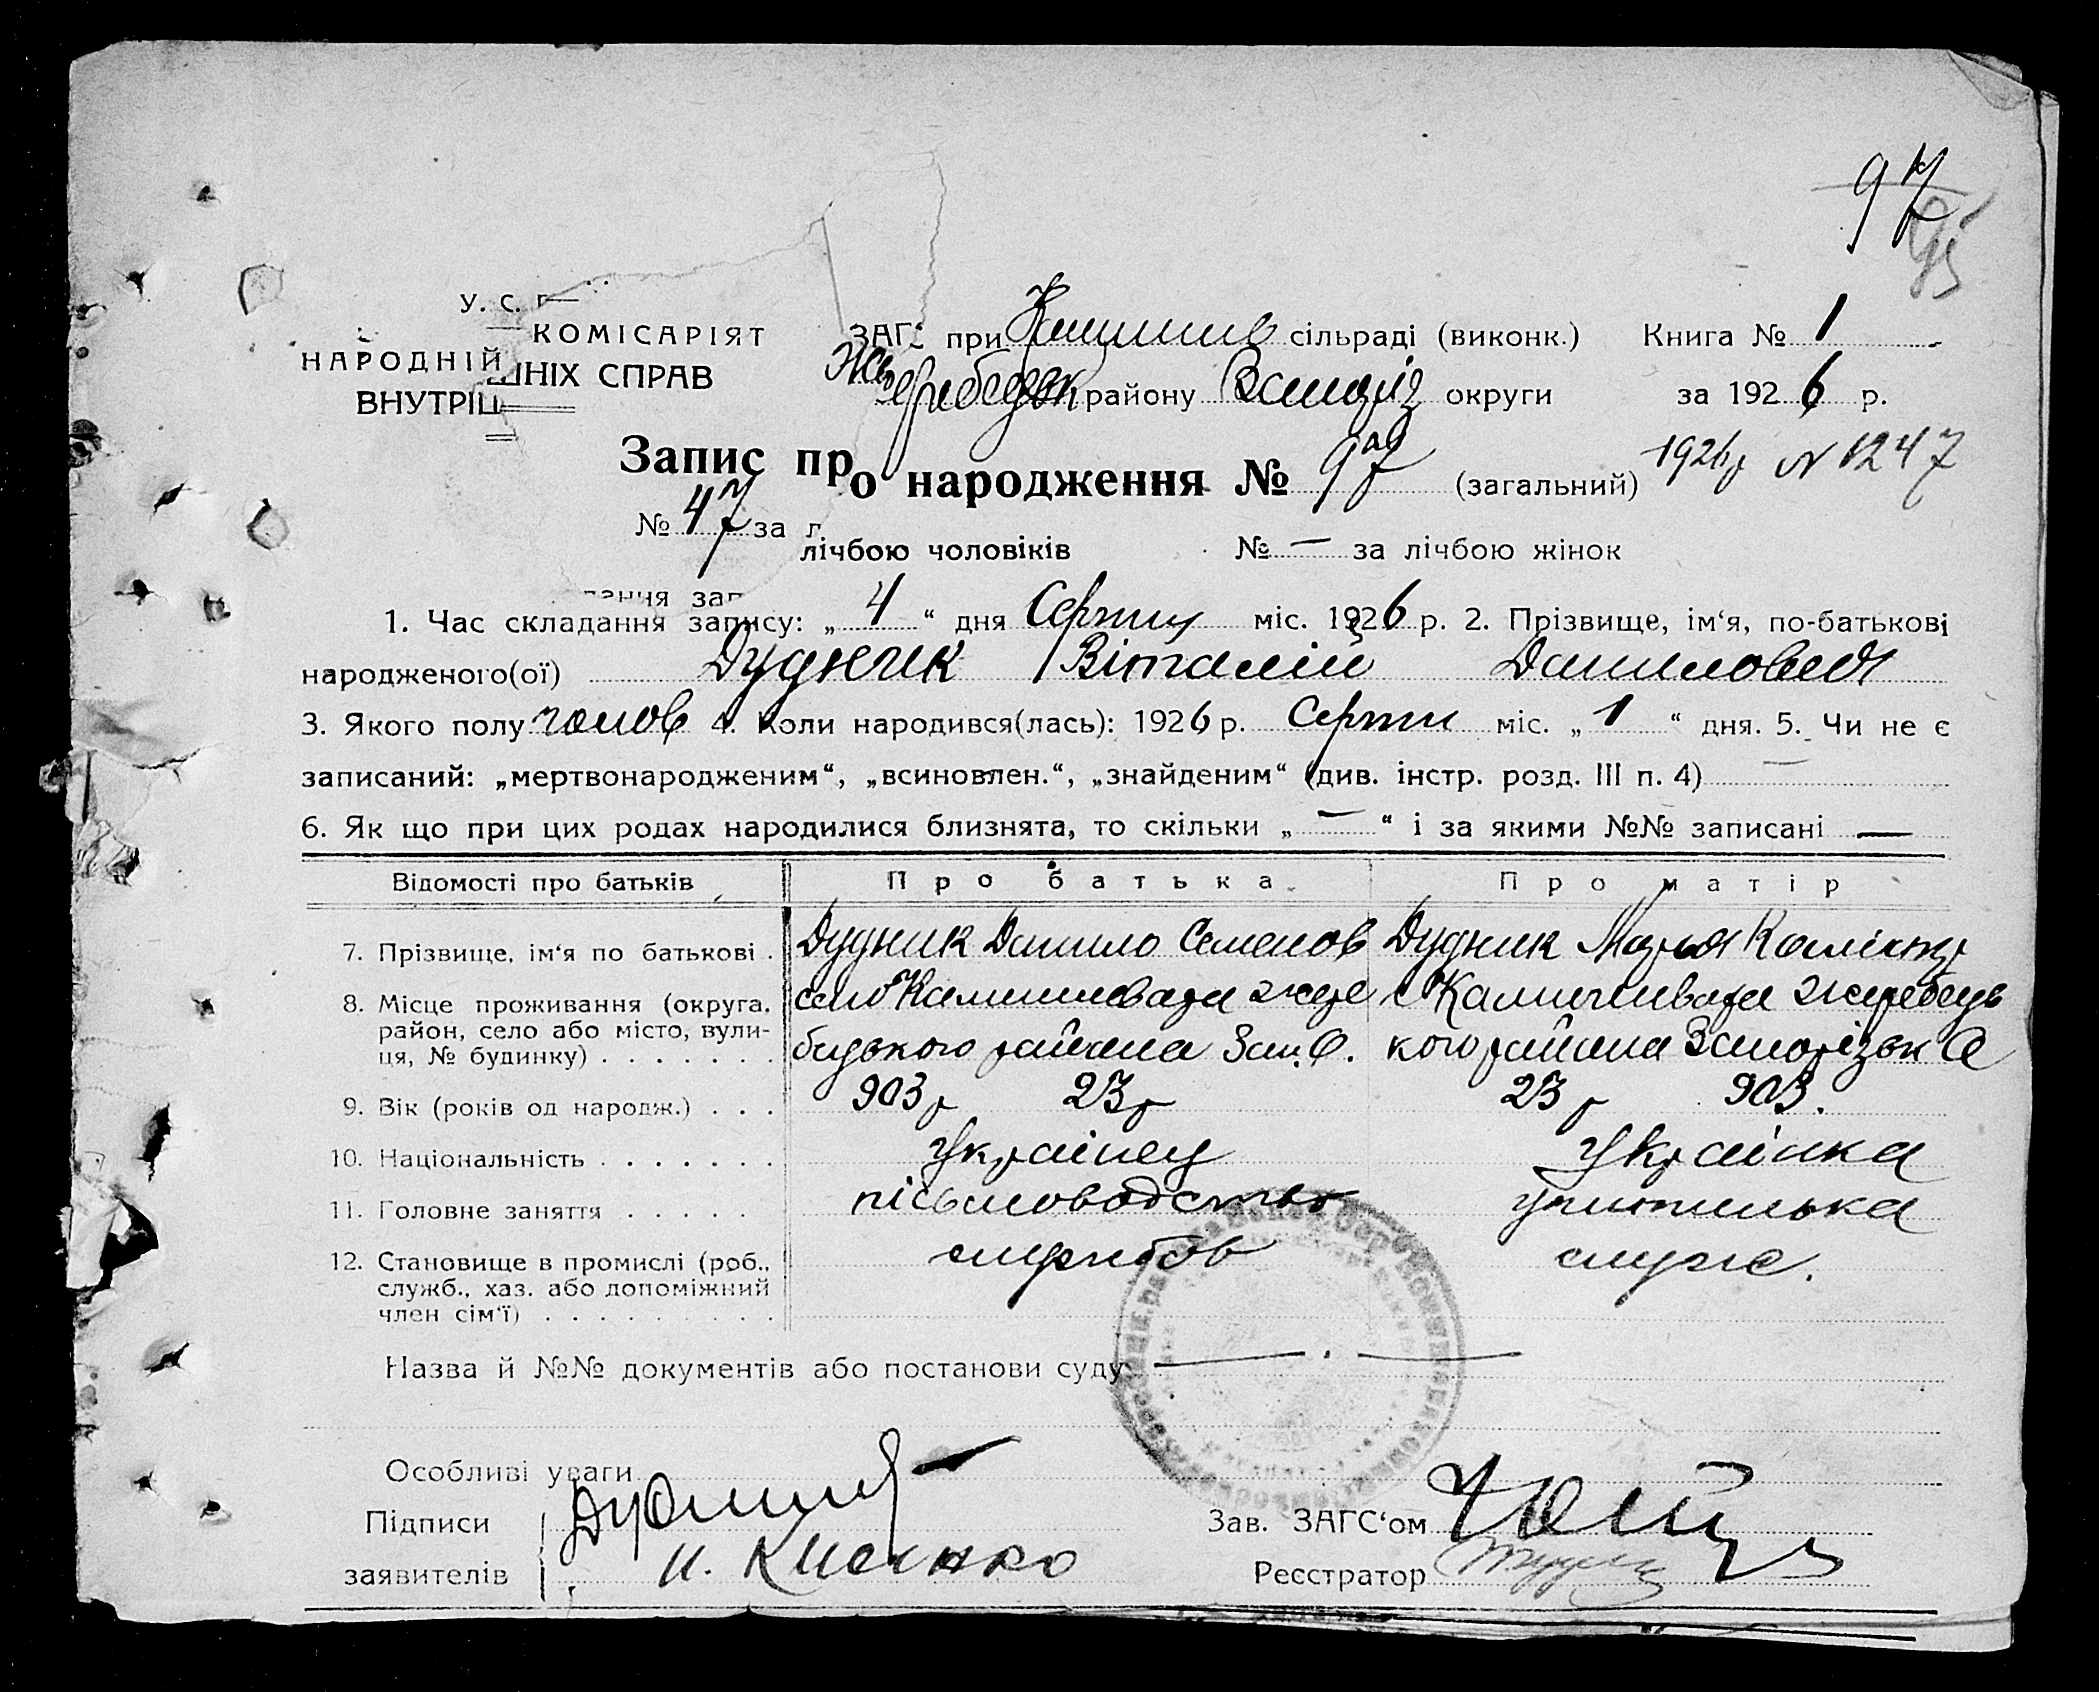 97
95
У. С.
НАРОДНІЙ КОМІСАРІЯТ
ВНУТРІШНІХ СПРАВ
ЗАГС при Камишив сільраді (виконк.) Книга № 1
Жеребецьк району Запоріз округи за 1926 р.
Запис про народження № 97 (загальний) 1926р N 1247
№ 47 за лічбою чоловіків № — за лічбою жінок
1. Час складання запису: „ 4 “ дня Серпня міс. 1926 р. 2. Прізвище, ім‘я, по-батькові
народженого(ої) Дудник Віталій Данилович
3. Якого полу чолов 4. Коли народився(лась): 1926 р. Серпня міс. „ 1 “ дня. 5. Чи не є
записаний: „мертвонародженим“, „всиновлен.“, „знайденим“ (див. інстр. розд. III п. 4) —
6. Як що при цих родах народилися близнята, то скільки „ — “ і за якими №№ записані —
Відомості про батьків Про батька Про матір
7. Прізвище, ім‘я по батькові . Дудник Данило Семенов Дудник Марья
8. Місце проживання (округа, район, село або місто, вулиця, № будинку) . . . . . . . село Камишеваха Жере
бецького района Зап. О. с Камишеваха Жеребець
кого района Запорізьк О
9. Вік (років од народж.) . . . 903р 23р 23р 903.
10. Національність . . . . . . . Українец Українка
11. Головне заняття . . . . . письмоводство учителька
12. Становище в промислі (роб., служб., хаз. або допоміжний член сім‘ї) . . . . . . . . . службов служ.
Назва й №№ документів або постанови суду —.—
Особливі уваги
Підписи
заявителів
Зав. ЗАГС‘ом
Реєстратор